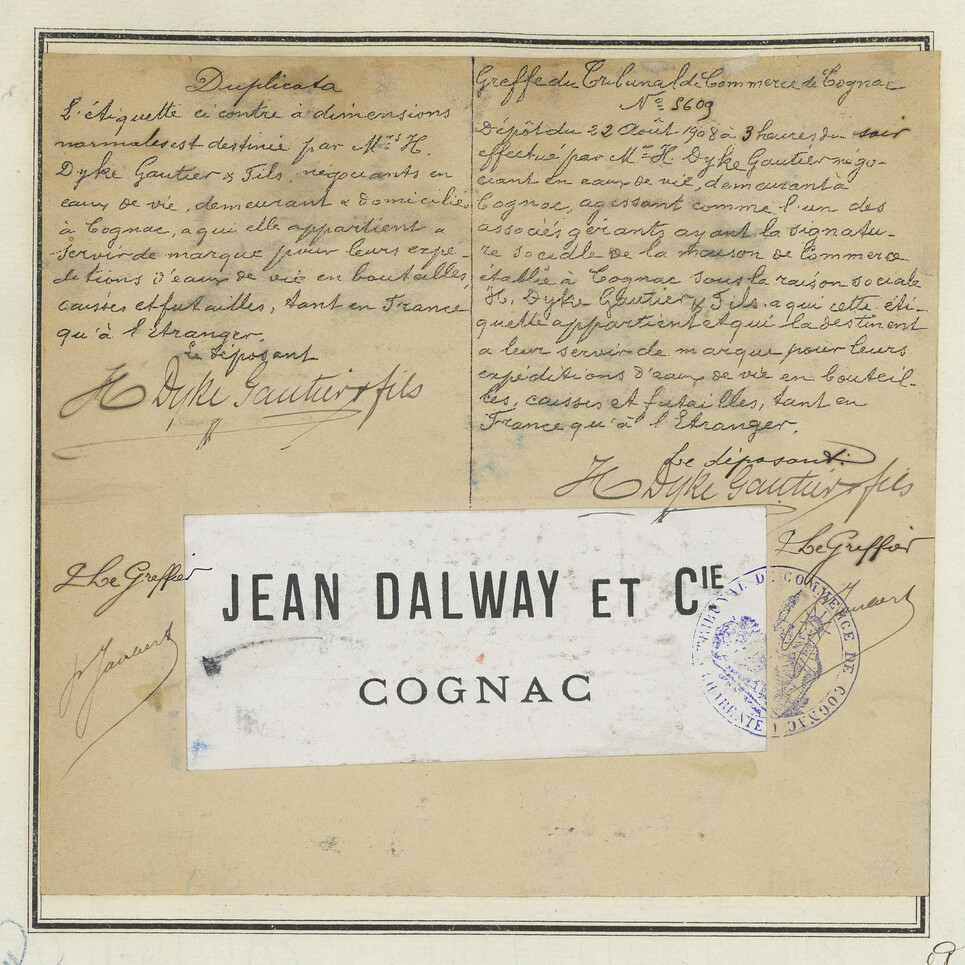 Duplicata
L'étiquette ci contre à dimensions
normales est destinée par Mrs H.
Dyke Gautier & Fils, négociants en
eaux de vie, demeurant & domiciliés
à Cognac, a qui elle appartient a
servir de marque pour leurs expé-
ditions d'eaux de vie en bouteilles,
caisses et futailles, tant en France
qu'à l'Etranger.
Le déposant
H Dyke Gautier & fils
Le Greffier
Greffe du Tribunal de Commerce de Cognac
No 5609
Dépôt du 22 Août 1908 à 3 heures du soir
effectué par Mr H Dyke Gautier négo-
ciant en eaux de vie, demeurant à
Cognac, agissant comme l'un des
associés gérants ayant la signatu-
re sociale de la maison de Commerce
établie à Cognac sous la raison sociale
H. Dyke Gautier & Fils a qui cette éti-
quette appartient et qui la destinent
a leur servir de marque pour leurs
expéditions d'eaux de vie en bouteil-
les, caisses et futailles, tant en
France qu'à l'Etranger.
Le déposant
H Dyke Gautier & fils
Le Greffier
JEAN DALWAY ET CIE
COGNAC
TRIBUNAL DE COMMERCE DE COGNAC
(CHARENTE)